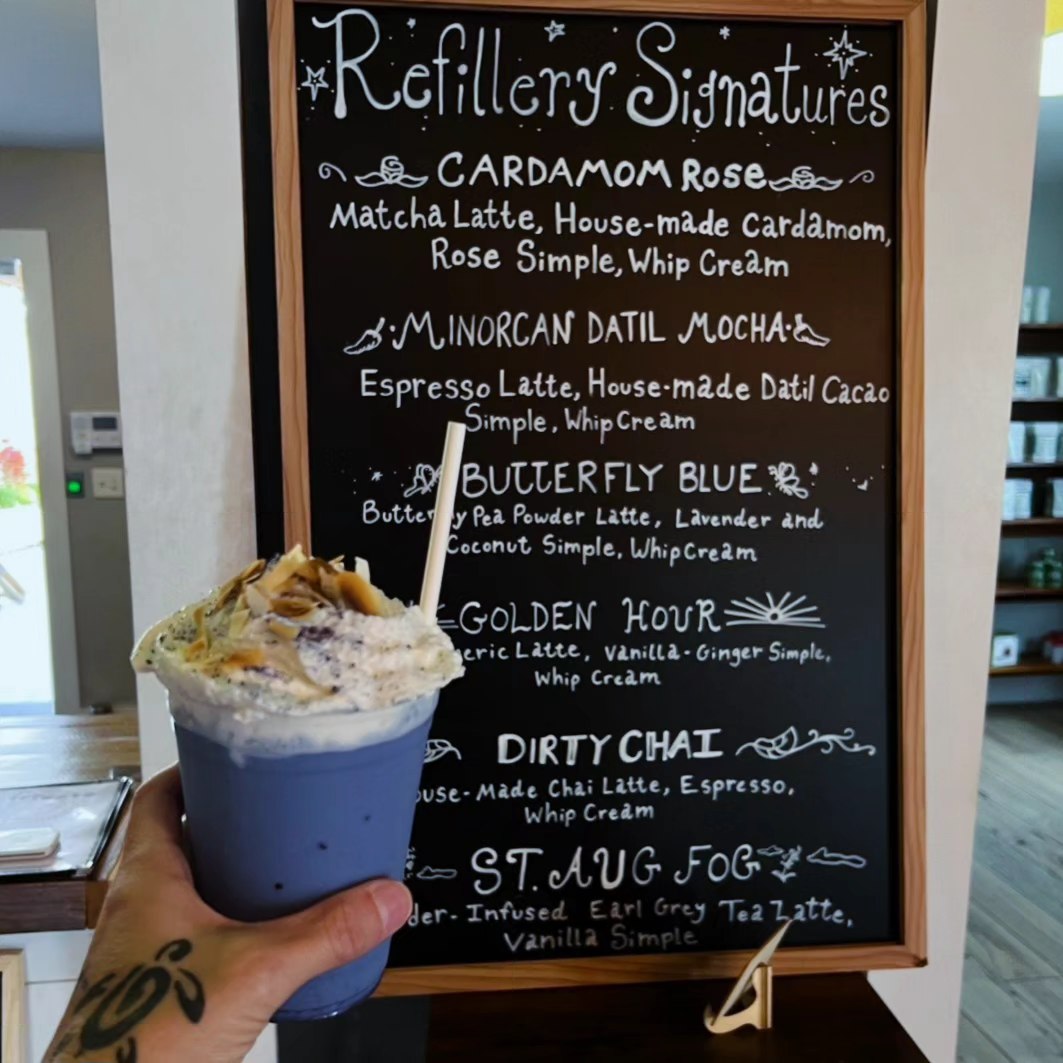 Refillery Signatures
CARDAMOM Rose
Matcha Latte, House-made Cardamom,
Rose Simple, Whip Cream
MINORCAN DATIL MOCHA
Espresso Latte, House-made Datil Cacao
Simple, Whip Cream
BUTTERFLY BLUE
Pea Powder Latte, Lavender and
Coconut Simple, Whip Cream
GOLDEN HOUR
Latte, Vanilla-Ginger Simple,
Whip Cream
DIRTY CHAI
Made Chai Latte, Espresso,
Whip Cream
ST. AUG FOG
Infused Earl Grey Tea Latte,
Vanilla Simple